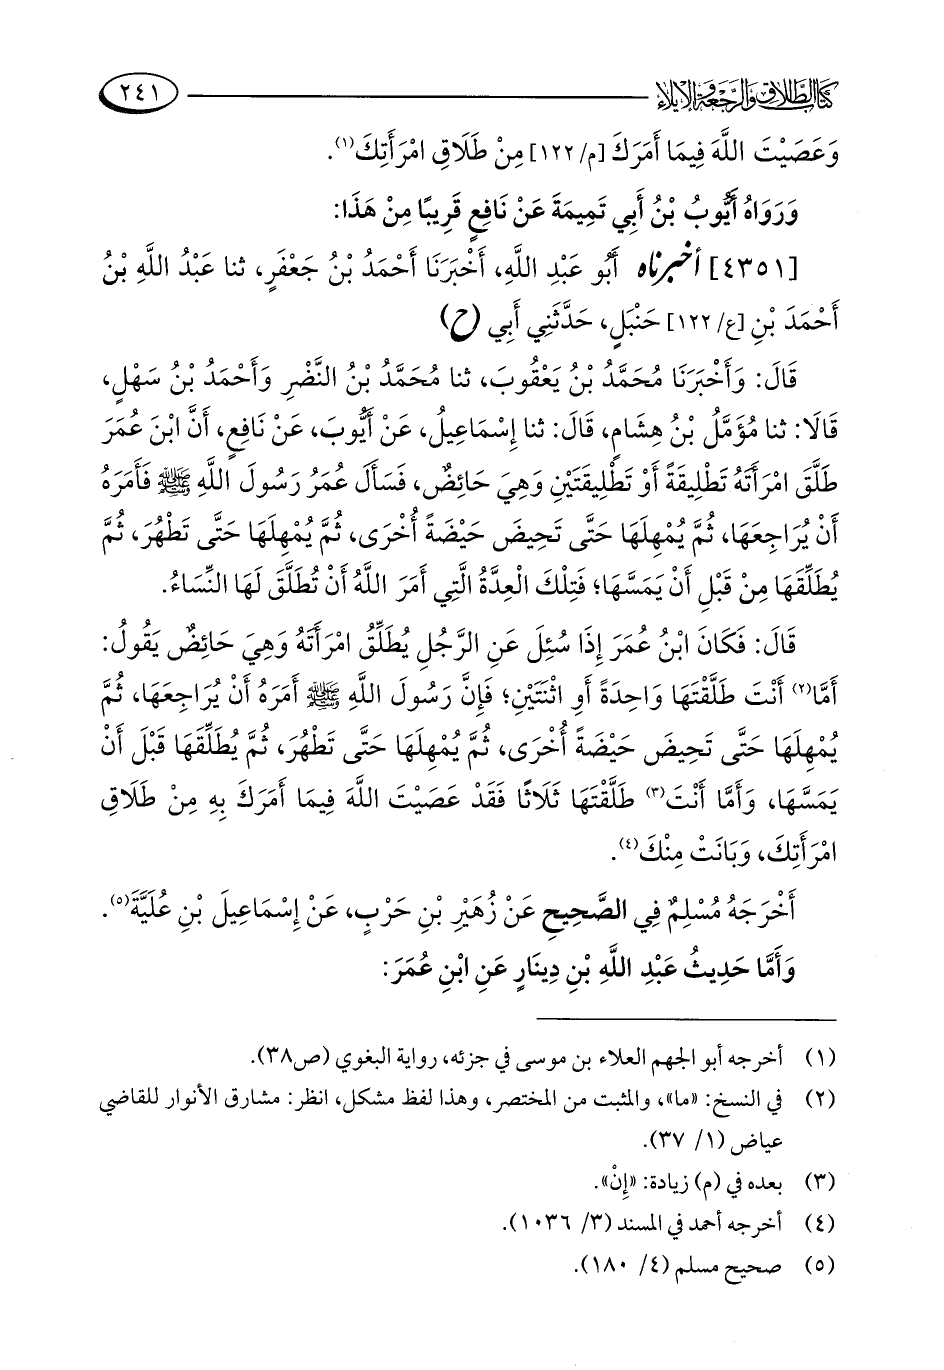 كتاب الطلاق والرجعة والإيلاء
٢٤١
وَعَصَيْتَ اللَّهَ فِيمَا أَمَرَكَ [م/ ١٢٢] مِنْ طَلَاقِ امْرَأَتِكَ(١).
وَرَوَاهُ أَيُّوبُ بْنُ أَبِي تَمِيمَةَ عَنْ نَافِعٍ قَرِيبًا مِنْ هَذَا:
[٤٣٥١] أخبرناه أَبُو عَبْدِ اللَّهِ، أَخْبَرَنَا أَحْمَدُ بْنُ جَعْفَرٍ، ثنا عَبْدُ اللَّهِ بْنُ
أَحْمَدَ بْنِ [ع/ ١٢٢] حَنْبَلٍ، حَدَّثَنِي أَبِي (ح)
قَالَ: وَأَخْبَرَنَا مُحَمَّدُ بْنُ يَعْقُوبَ، ثنا مُحَمَّدُ بْنُ النَّضْرِ وَأَحْمَدُ بْنُ سَهْلٍ،
قَالَا: ثنا مُؤَمَّلُ بْنُ هِشَامٍ، قَالَ: ثنا إِسْمَاعِيلُ، عَنْ أَيُّوبَ، عَنْ نَافِعٍ، أَنَّ ابْنَ عُمَرَ
طَلَّقَ امْرَأَتَهُ تَطْلِيقَةً أَوْ تَطْلِيقَتَيْنِ وَهِيَ حَائِضٌ، فَسَأَلَ عُمَرُ رَسُولَ اللَّهِ ﷺ فَأَمَرَهُ
أَنْ يُرَاجِعَهَا، ثُمَّ يُمْهِلَهَا حَتَّى تَحِيضَ حَيْضَةً أُخْرَى، ثُمَّ يُمْهِلَهَا حَتَّى تَطْهُرَ، ثُمَّ
يُطَلِّقَهَا مِنْ قَبْلِ أَنْ يَمَسَّهَا؛ فَتِلْكَ الْعِدَّةُ الَّتِي أَمَرَ اللَّهُ أَنْ تُطَلَّقَ لَهَا النِّسَاءُ.
قَالَ: فَكَانَ ابْنُ عُمَرَ إِذَا سُئِلَ عَنِ الرَّجُلِ يُطَلِّقُ امْرَأَتَهُ وَهِيَ حَائِضٌ يَقُولُ:
أَمَّا(٢) أَنْتَ طَلَّقْتَهَا وَاحِدَةً أَوِ اثْنَتَيْنِ؛ فَإِنَّ رَسُولَ اللَّهِ ﷺ أَمَرَهُ أَنْ يُرَاجِعَهَا، ثُمَّ
يُمْهِلَهَا حَتَّى تَحِيضَ حَيْضَةً أُخْرَى، ثُمَّ يُمْهِلَهَا حَتَّى تَطْهُرَ، ثُمَّ يُطَلِّقَهَا قَبْلَ أَنْ
يَمَسَّهَا، وَأَمَّا أَنْتَ(٣) طَلَّقْتَهَا ثَلَاثًا فَقَدْ عَصَيْتَ اللَّهَ فِيمَا أَمَرَكَ بِهِ مِنْ طَلَاقِ
امْرَأَتِكَ، وَبَانَتْ مِنْكَ(٤).
أَخْرَجَهُ مُسْلِمٌ فِي الصَّحِيحِ عَنْ زُهَيْرِ بْنِ حَرْبٍ، عَنْ إِسْمَاعِيلَ بْنِ عُلَيَّةَ(٥).
وَأَمَّا حَدِيثُ عَبْدِ اللَّهِ بْنِ دِينَارٍ عَنِ ابْنِ عُمَرَ:
(١) أخرجه أبو الجهم العلاء بن موسى في جزئه، رواية البغوي (ص٣٨).
(٢) في النسخ: «ما»، والمثبت من المختصر، وهذا لفظ مشكل، انظر: مشارق الأنوار للقاضي
عياض (١/ ٣٧).
(٣) بعده في (م) زيادة: «إِنْ».
(٤) أخرجه أحمد في المسند (٣/ ١٠٣٦).
(٥) صحيح مسلم (٤/ ١٨٠).